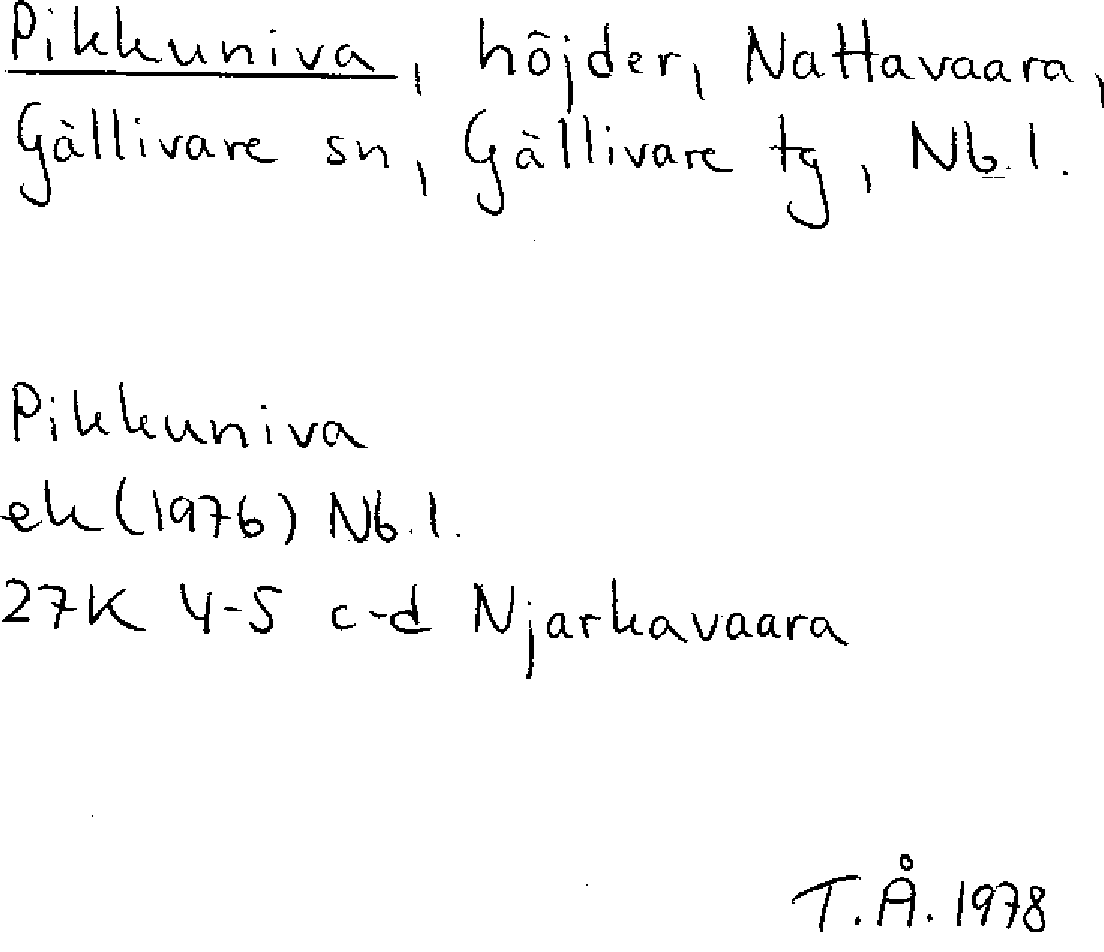 Pikkuniva, höjder, Nattavaara,
Gällivare sn, Gällivare tg, Nb.l.
Pikkuniva
ek (1976) Nb.l.
27K 4-5 c-d Njarkavaara
T.Å. 1978